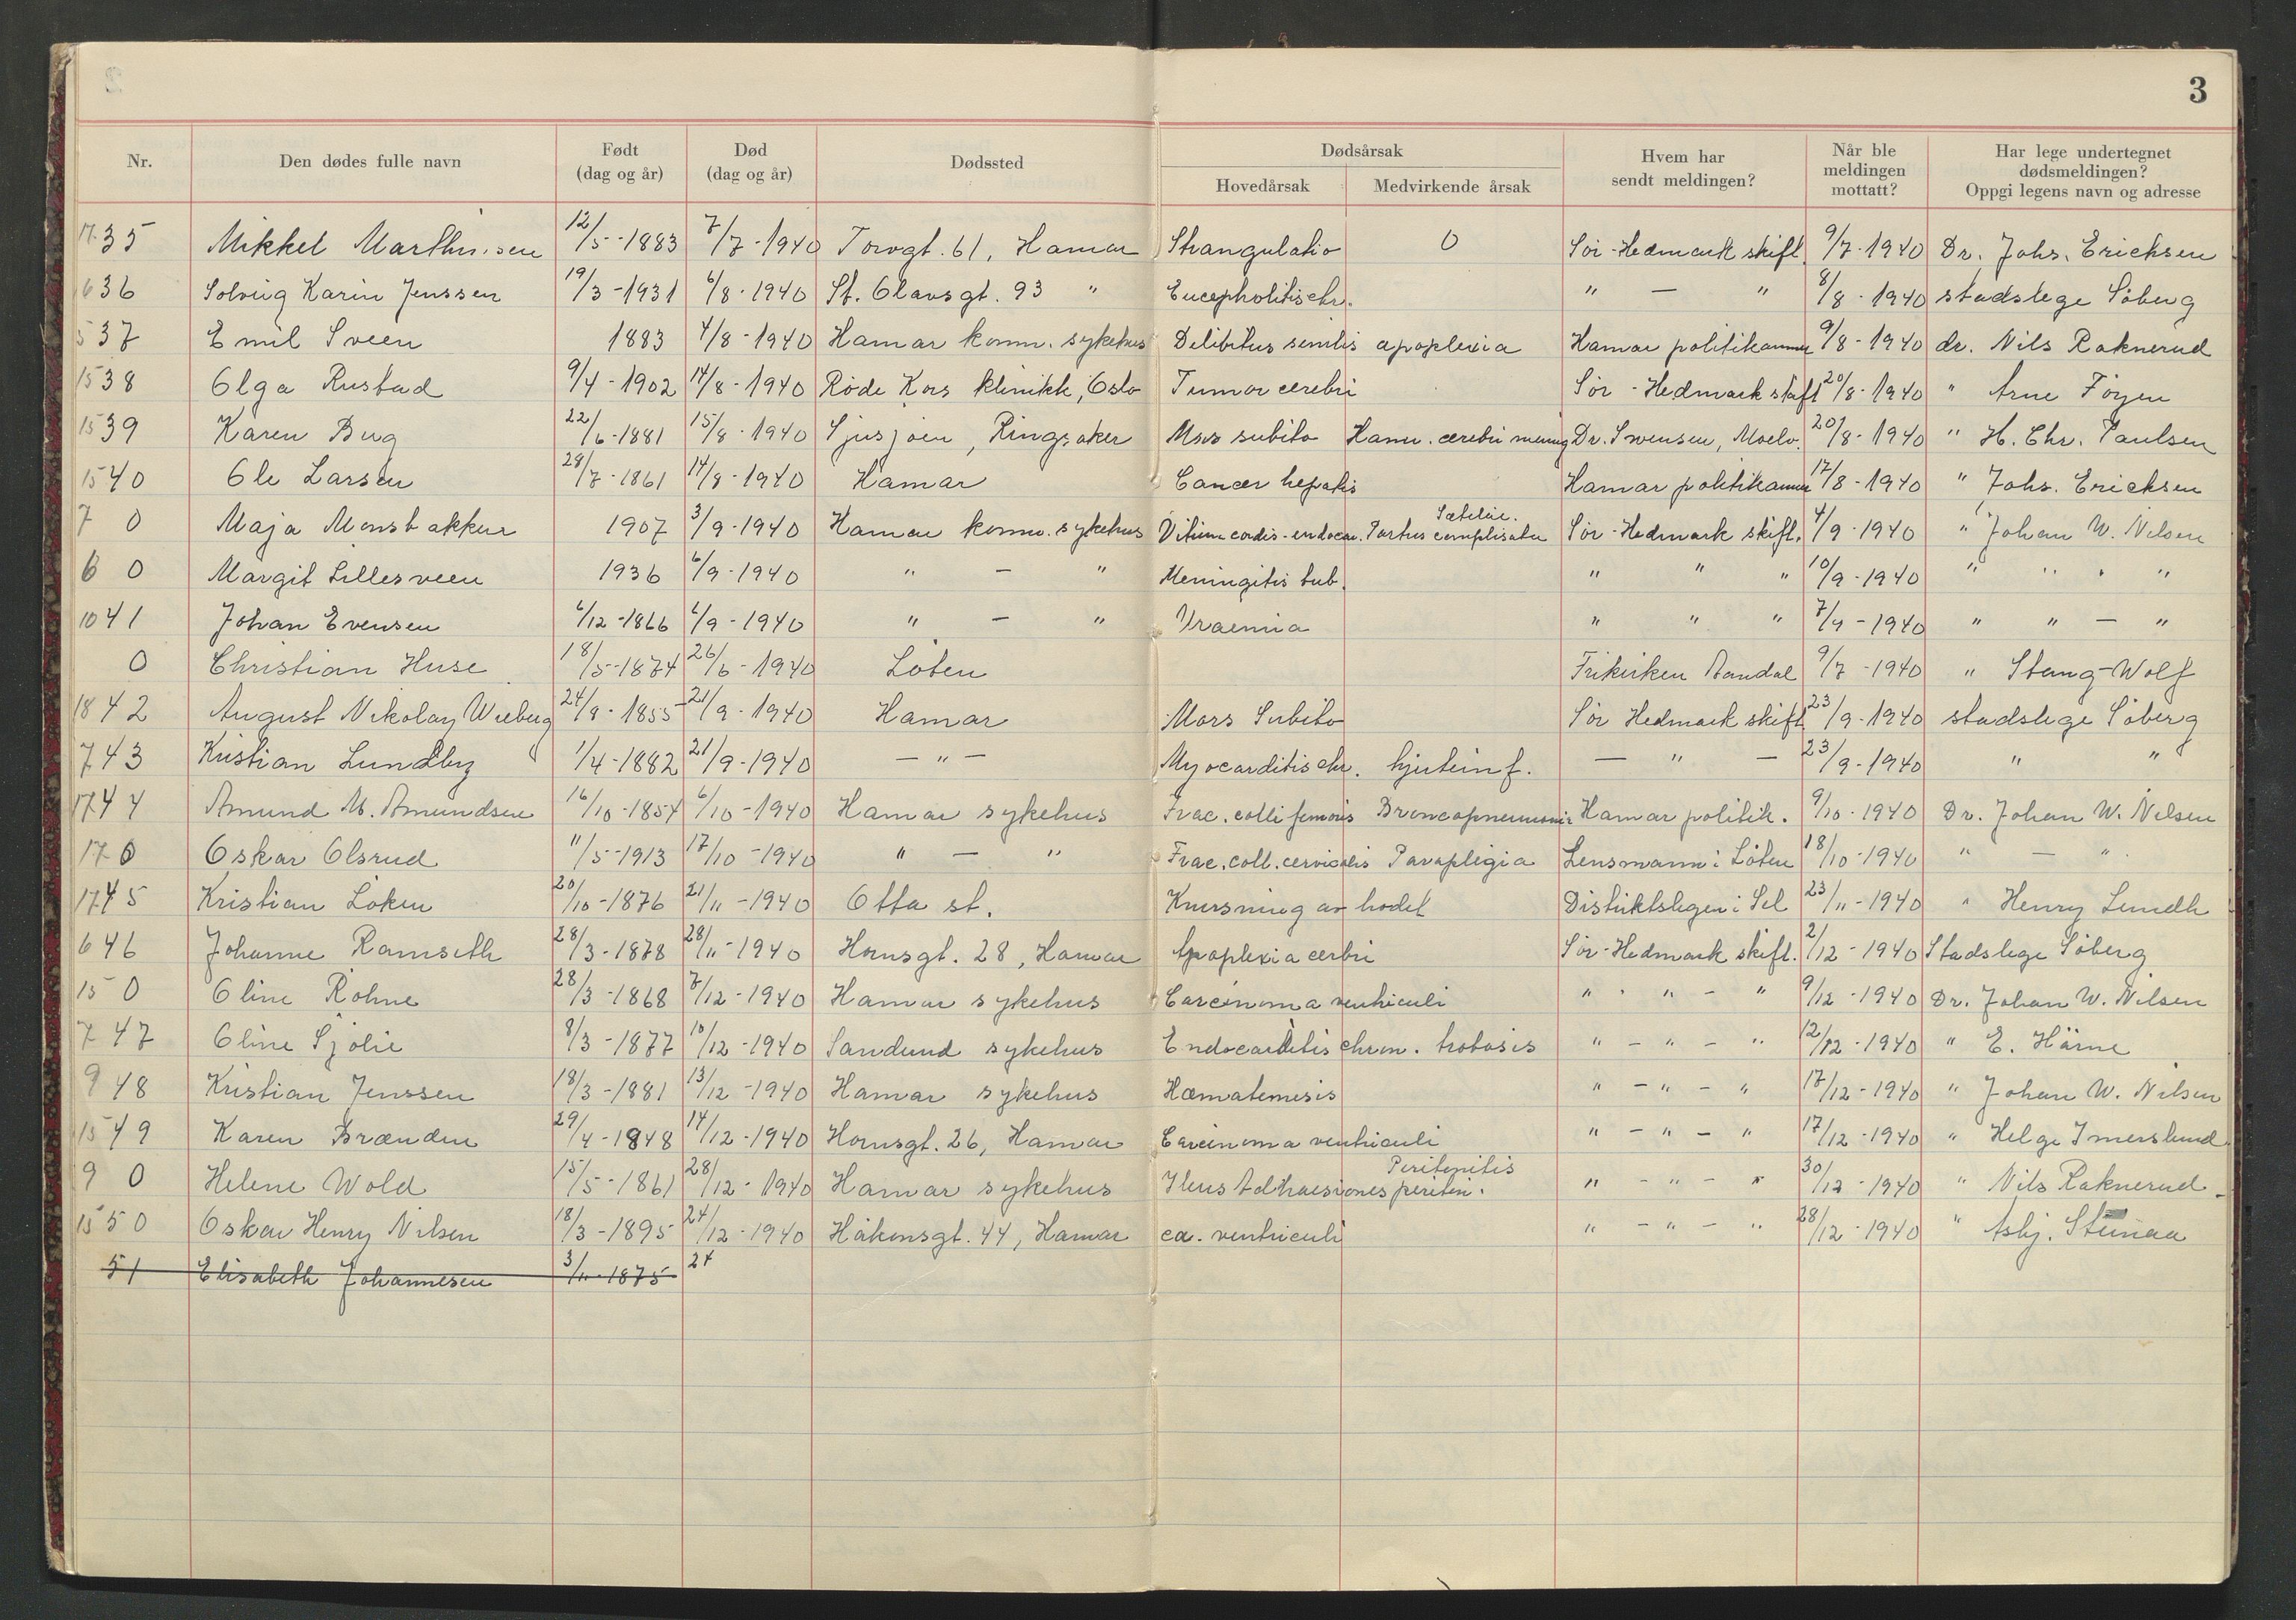 3
Nr. Den dødes fulle navn Født (dag og år) Død (dag og år) Dødssted Dødsårsak Hovedårsak Medvirkende årsak Hvem har sendt meldingen? Når ble meldingen mottatt? Har lege undertegnet dødsmeldingen? Oppgi legens navn og adresse
17 35 Mikkel Marthinsen 12/5-1883 7/7-1940 Torvgt. 61, Hamar Strangulatio 0 Sør-Hedmark skift. 9/7-1940 Dr. Johs. Ericksen
6 36 Solveig Karin Jenssen 19/3-1931 6/8-1940 St. Olavsgt. 93 " Encepholitis chr. " — " 8/8-1940 stadslege Söberg
5 37 Emil Sveen 1883 4/8-1940 Hamar komm. sykehus Delibitus senilis apoplexia Hamar politikammer 9/8-1940 dr. Nils Raknerud
15 38 Olga Rustad 9/4-1902 14/8-1940 Røde Kors klinikk, Oslo Tumor cerebri Sör-Hedmark skift 20/8-1940 " ArneFöyen
15 39 Karen Berg 22/6-1881 15/8-1940 Sjusjöen, Ringsaker Mors subito Dr. Swensen, Moelv. 20/8-1940 " H. Chr. Paulsen
15 40 Ole Larsen 28/7-1861 14/8-1940 Hamar Cancer hepatis Hamar politikammer 17/8-1940 " Johs. Ericksen
7 0 Maja Monsbakken 1907 3/9-1940 Hamar komm. sykehus Vitium cordis-endocar. Partus complisatu Sør-Hedmark skift. 4/9-1940 " Johan W. Nilsen
6 0 Margit Lillesveen 1936 6/9-1940 " — " Meningitis tub. " " " 10/9-1940 " " " "
10 41 Johan Evensen 6/12-1866 6/9-1940 " — " Uraemia " " " 7/9-1940 " " — "
0 Christian Huse 18/5-1874 26/6-1940 Löten Frikirken Aandal 9/7-1940 " Stang-Wolf
18 42 August Nikolay Wieberg 24/9-1855 21/9-1940 Hamar Mors Subito Sör Hedmark skift 23/9-1940 stadslege Söberg
7 43 Kristian Lundby 1/4-1882 21/9-1940 — " — Myocarditis chr. hjerteinf. — " — 23/9-1940 " "
17 44 Amund M. Amundsen 16/10-1854 6/10-1940 Hamar sykehus Frac. colli femoris Broncopneumonie Hamar politik. 9/10-1940 Dr. Johan W. Nilsen
17 0 Oskar Olsrud 11/5-1913 17/10-1940 " — " Frac. coll. cervicalis Parapligia Lensmann i Löten 18/10-1940 " — "
17 45 Kristian Löken 20/10-1876 21/11-1940 Otta st. Knusning av hodet Distriktslegen i Sel 23/11-1940 " Henry Lundh
6 46 Johanne Ramseth 28/3-1878 28/11-1940 Hornsgt. 28, Hamar Apoplexia cerbri Sör-Hedmark skift. 2/12-1940 Stadslege Söberg
15 0 Oline Röhne 28/3-1868 7/12-1940 Hamar sykehus Carcinoma ventriculi " " - " 9/12-1940 Dr. Johan W. Nilsen
7 47 Oline Sjölie 8/3-1877 10/12-1940 Sanderud sykehus Endocarditis chron. " - " - " 12/12-1940 " E. Härne
9 48 Kristian Jenssen 18/3-1881 13/12-1940 Hamar sykehus Hæmatemesis " - " - " 17/12-1940 " Johan W. Nilsen
15 49 Karen Brænden 29/4-1848 14/12-1940 Hornsgt. 26, Hamar Carcinoma ventriculi " - " - " 17/12-1940 " Helge Imerslund
9 0 Helene Wold 15/5-1861 28/12-1940 Hamar sykehus Ileus Adhaesiones periton. Peritonitis " - " - " 30/12-1940 " Nils Raknerud
15 50 Oskar Henry Nilsen 18/3-1895 24/12-1940 Håkonsgt. 44, Hamar ca. ventriculi " - " - " 28/12-1940 " Asbj.
51 Elisabeth Johannesen 3/11-1875 24